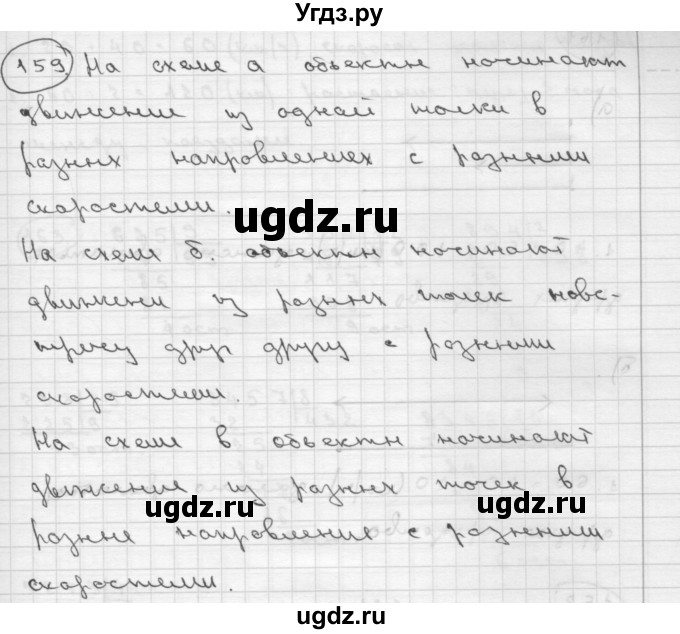 Угдз.ру
159 На схеме а объекты начинают
движение из одной точки в
разных направлениях с разными
скоростями.
ugdz.ru
На схеме б. объекты начинают
движение из разных точек навс-
тречу друг другу с разными
ugdz.ru
скоростями.
На схеме в объекты начинают
движение из разных точек в
ugdz.ru ugdz.ru
разные направления с разными
скоростями.
ugdz.ru